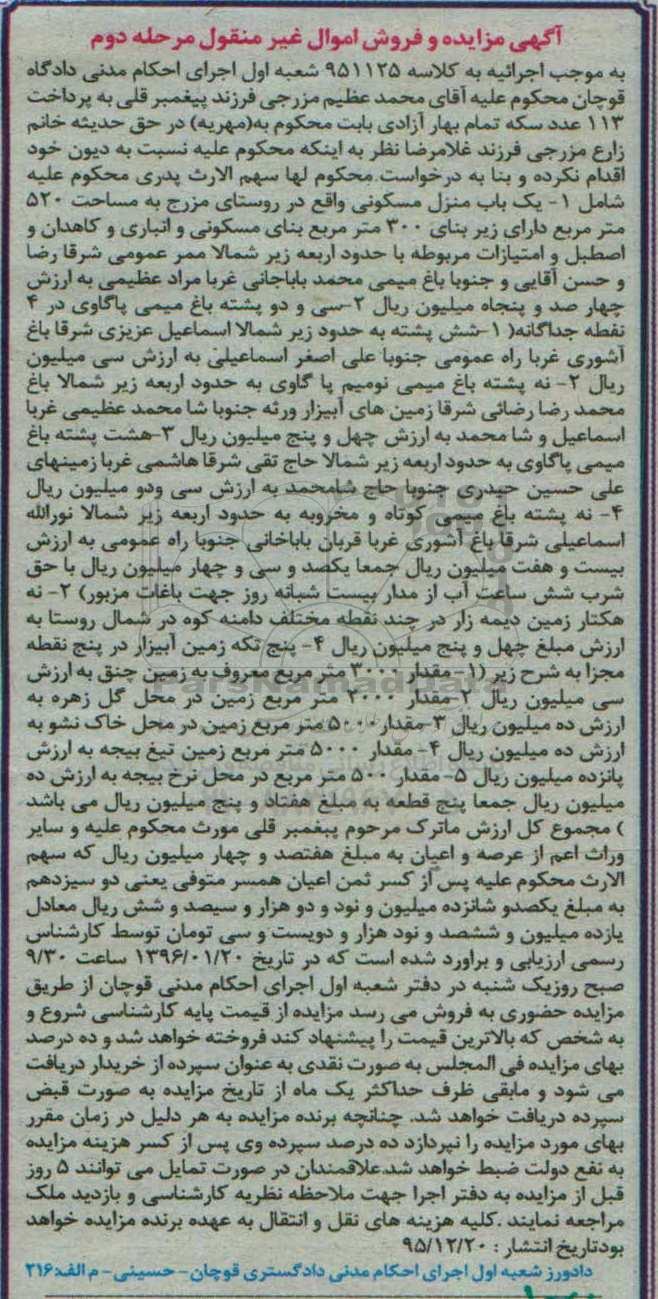 آگهی مزایده و فروش اموال غیر منقول مرحله دوم
به موجب اجرائیه به کلاسه ۹۵۱۱۲۵ شعبه اول اجرای احکام مدنی دادگاه
قوچان محکوم علیه آقای محمد عظیم مزرجی فرزند پیغمبر قلی به پرداخت
۱۱۳ عدد سکه تمام بهار آزادی بابت محکوم به(مهریه) در حق حدیثه خانم
زارع مزرجی فرزند غلامرضا نظر به اینکه محکوم علیه نسبت به دیون خود
اقدام نکرده و بنا به درخواست.محکوم لها سهم الارث پدری محکوم علیه
شامل ۱- یک باب منزل مسکونی واقع در روستای مزرج به مساحت ۵۲۰
متر مربع دارای زیر بنای ۳۰۰ متر مربع بنای مسکونی و انباری و کاهدان و
اصطبل و امتیازات مربوطه با حدود اربعه زیر شمالا ممر عمومی شرقا رضا
و حسن آقایی و جنوبا باغ میمی محمد باباجانی غربا مراد عظیمی به ارزش
چهار صد و پنجاه میلیون ریال ۲-سی و دو پشته باغ میمی پاگاوی در ۴
نقطه جداگانه( ۱-شش پشته به حدود زیر شمالا اسماعیل عزیزی شرقا باغ
آشوری غربا راه عمومی جنوبا علی اصغر اسماعیلی به ارزش سی میلیون
ریال ۲- نه پشته باغ میمی نومیم پا گاوی به حدود اربعه زیر شمالا باغ
محمد رضا رضائی شرقا زمین های آبیزار ورثه جنوبا شا محمد عظیمی غربا
اسماعیل و شا محمد به ارزش چهل و پنج میلیون ریال ۳-هشت پشته باغ
میمی پاگاوی به حدود اربعه زیر شمالا حاج تقی شرقا هاشمی غربا زمینهای
علی حسین حیدری جنوبا حاج شامحمد به ارزش سی ودو میلیون ریال
۴- نه پشته باغ میمی کوتاه و مخروبه به حدود اربعه زیر شمالا نورالله
اسماعیلی شرقا باغ آشوری غربا قربان باباخانی جنوبا راه عمومی به ارزش
بیست و هفت میلیون ریال جمعا یکصد و سی و چهار میلیون ریال با حق
شرب شش ساعت آب از مدار بیست شبانه روز جهت باغات مزبور) ۲- نه
هکتار زمین دیمه زار در چند نقطه مختلف دامنه کوه در شمال روستا به
ارزش مبلغ چهل و پنج میلیون ریال ۴- پنج تکه زمین آبیزار در پنج نقطه
مجزا به شرح زیر (۱- مقدار ۳۰۰۰ متر مربع معروف به زمین چنق به ارزش
سی میلیون ریال ۲-مقدار ۲۰۰۰ متر مربع زمین در محل گل زهره به
ارزش ده میلیون ریال ۳-مقدار ۵۰۰۰ متر مربع زمین در محل خاک نشو به
ارزش ده میلیون ریال ۴- مقدار ۵۰۰۰ متر مربع زمین تیغ بیجه به ارزش
پانزده میلیون ریال ۵- مقدار ۵۰۰ متر مربع در محل نرخ بیجه به ارزش ده
میلیون ریال جمعا پنج قطعه به مبلغ هفتاد و پنج میلیون ریال می باشد
) مجموع کل ارزش ماترک مرحوم پیغمبر قلی مورث محکوم علیه و سایر
وراث اعم از عرصه و اعیان به مبلغ هفتصد و چهار میلیون ریال که سهم
الارث محکوم علیه پس از کسر ثمن اعیان همسر متوفی یعنی دو سیزدهم
به مبلغ یکصدو شانزده میلیون و نود و دو هزار و سیصد و شش ریال معادل
یازده میلیون و ششصد و نود هزار و دویست و سی تومان توسط کارشناس
رسمی ارزیابی و براورد شده است که در تاریخ ۱۳۹۶/۰۱/۲۰ ساعت ۹/۳۰
صبح روزیک شنبه در دفتر شعبه اول اجرای احکام مدنی قوچان از طریق
مزایده حضوری به فروش می رسد مزایده از قیمت پایه کارشناسی شروع و
به شخص که بالاترین قیمت را پیشنهاد کند فروخته خواهد شد و ده درصد
بهای مزایده فی المجلس به صورت نقدی به عنوان سپرده از خریدار دریافت
می شود و مابقی ظرف حداکثر یک ماه از تاریخ مزایده به صورت قبض
سپرده دریافت خواهد شد. چنانچه برنده مزایده به هر دلیل در زمان مقرر
بهای مورد مزایده را نپردازد ده درصد سپرده وی پس از کسر هزینه مزایده
به نفع دولت ضبط خواهد شد.علاقمندان در صورت تمایل می توانند ۵ روز
قبل از مزایده به دفتر اجرا جهت ملاحظه نظریه کارشناسی و بازدید ملک
مراجعه نمایند .کلیه هزینه های نقل و انتقال به عهده برنده مزایده خواهد
بودتاریخ انتشار : ۹۵/۱۲/۲۰
دادورز شعبه اول اجرای احکام مدنی دادگستری قوچان- حسینی- م الف:۲۱۶
ParsNamadData